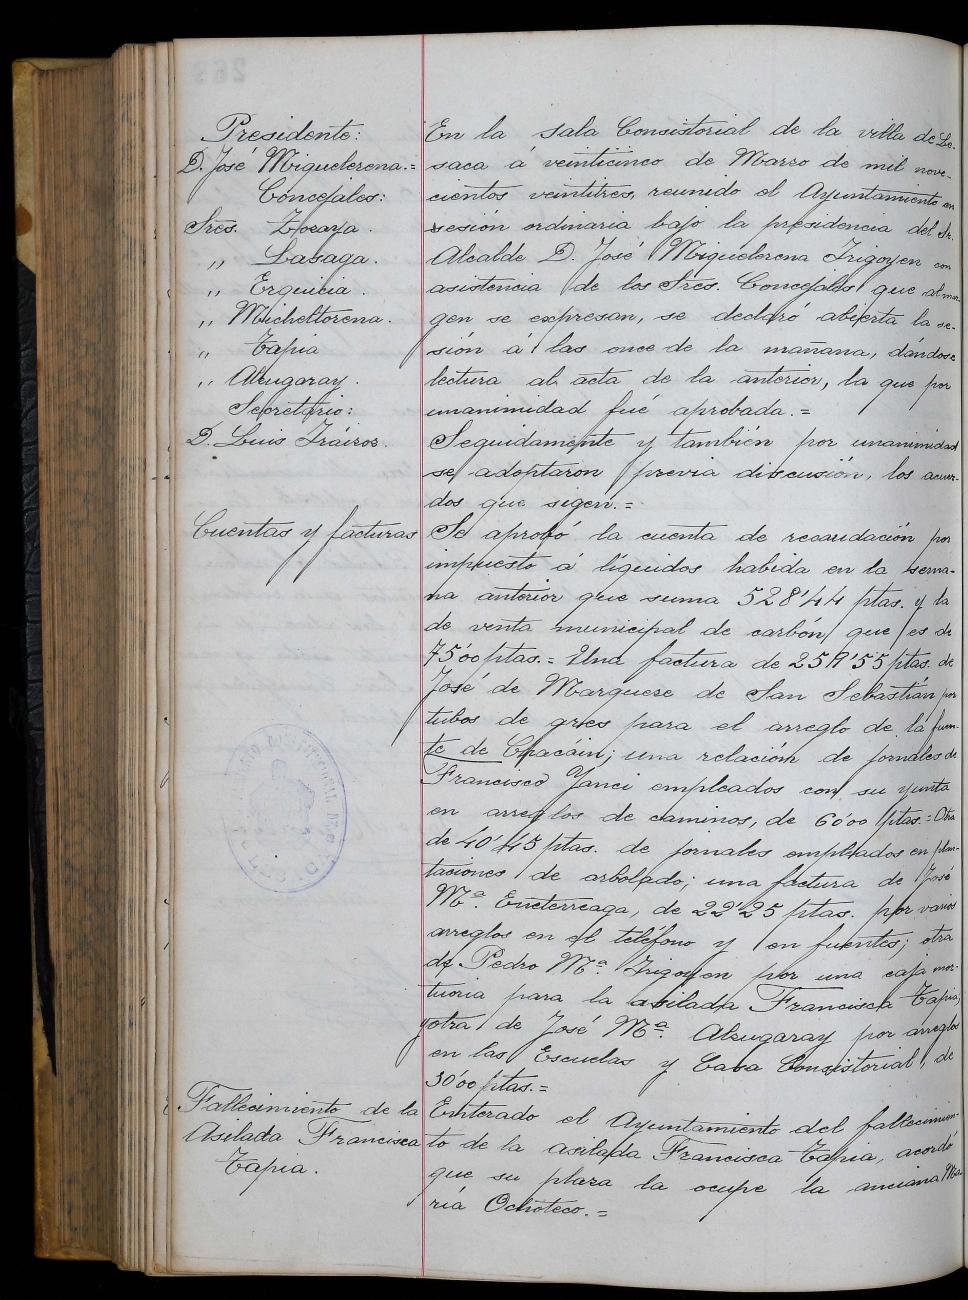 Presidente:
D. José Miguelerena.=
Concejales:
Sres. Zocaya.
„ Lasaga.
„ Erquicia.
„ Micheltorena.
„ Tapia
„ Alzugaray.
Secretario:
D. Luis Iráizoz.
En la sala Consistorial de la villa de Le-
saca á veinticinco de Marzo de mil nove-
cientos veintitres, reunido el Ayuntamiento en
sesión ordinaria bajo la presidencia del Sr.
Alcalde D. José Miguelerena Irigoyen con
asistencia de los Sres. Concejales que al mar-
gen se expresan, se declaró abierta la se-
sión á las once de la mañana, dándose
lectura al acta de la anterior, la que por
unanimidad fué aprobada.=
Seguidamente y también por unanimidad
se adoptaron previa discusión, los acuer-
dos que sigen.=
Cuentas y facturas
Se aprobó la cuenta de recaudación por
impuesto á líquidos habida en la sema-
na anterior que suma 528'44 ptas. y la
de venta municipal de carbón que es de
75'00 ptas.= Una factura de 259'55 ptas. de
José de Marqueze de San Sebastián por
tubos de gres para el arreglo de la fuen-
te de Chacáin; una relación de jornales de
Francisco Yanci empleados con su yunta
en arreglos de caminos, de 60'00 ptas.= Otra
de 40'45 ptas. de jornales empleados en plan-
taciones de arbolado; una factura de José
Mª. Eneterreaga, de 22'25 ptas. por varios
arreglos en el teléfono y en fuentes; otra
de Pedro Mª Irigoyen por una caja mor-
tuoria para la asilada Francisca Tapia,
y otra de José Mª. Alzugaray por arreglos
en las Escuelas y Casa Consistorial, de
30'00 ptas.=
Fallecimiento de la
Asilada Francisca
Tapia.
Enterado el Ayuntamiento del fallecimien-
to de la asilada Francisca Tapia, acordó
que su plaza la ocupe la anciana Ma-
ría Ochoteco.=